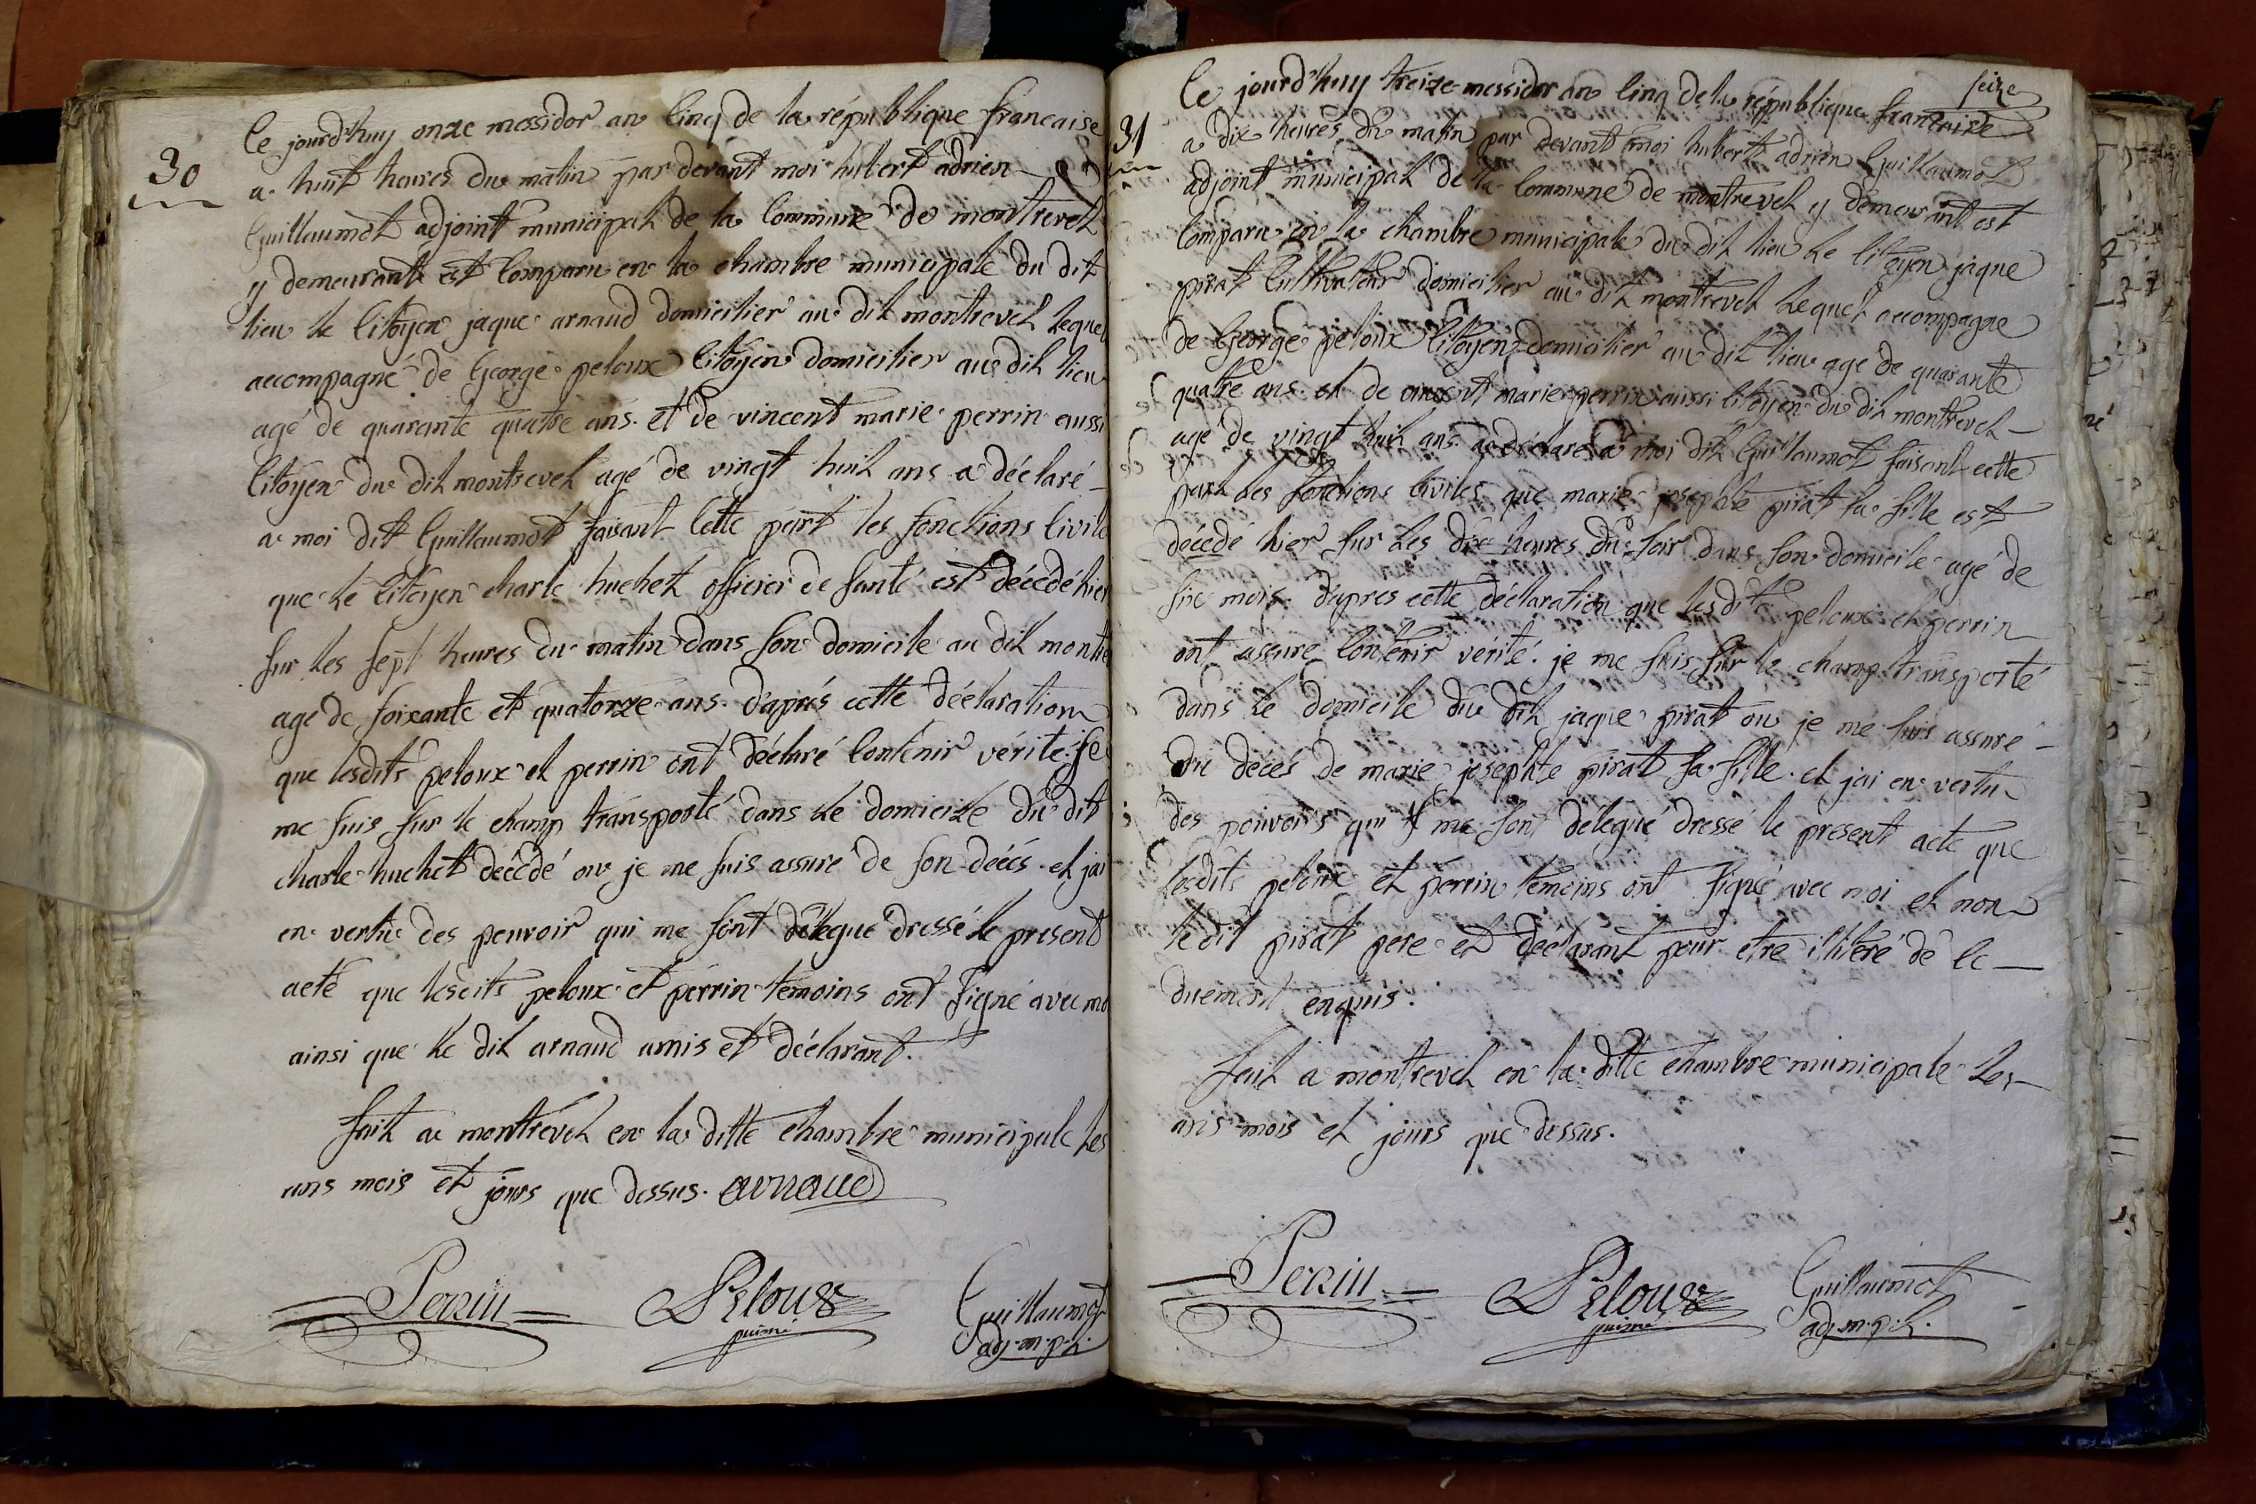 30
Ce jourd'huy onze messidor an cinq de la république francaise
a huit heures du matin par devant moi hubert adrien
Guillaumot adjoint municipal de la Commune de montrevel
y demeurant est Comparu en la chambre municipale du dit
lieu le Citoyen jaque arnaud domicilier au dit montrevel lequel
accompagné de George peloux Citoyen domicilier au dit lieu
agé de quarante quatre ans. et de vincent marie perrin aussi
Citoyen du dit montrevel agé de vingt huit ans a déclaré
a moi dit Guillaumot faisant Cette part les fonctions Civile
que le Citoyen charle huchet officier de santé est décedé hier
sur les sept heures du matin dans son domicile au dit montre
agé de soixante et quatorze ans. d'aprés cette déclaration
que lesdits peloux et perrin ont déclaré Contenir vérité. je
me suis sur le champ transporté dans le domicile du dit
charle huchet décédé ou je me suis assuré de son decés. et jai
en vertu des pouvoir qui me sont délegué dressé le present
acte que lesdits peloux et perrin temoins ont signé avec mo
ainsi que le dit arnaud amis et déclarant.
fait a montrével en la ditte chambre municipale les
ans mois et jours que dessus. arnaud
Perrin Peloux puiné Guillaumot
adj. m.p.l.
seize
31
Ce jourd'huy treize messidor an cinq de la république francaise
a dix heures du matin par devant moi hubert adrien Guillaumot
adjoint municipal de la Commune de montrevel y demeurant est
Comparu en la chambre municipale du dit lieu le Citoyen jaque
pirat Cultivateur domicilier au dit montrevel lequel accompagne
de George peloux Citoyen domicilier au dit lieu agé de quarante
quatre ans. et de vincent marie perrin aussi Citoyen du dit montrevel
agé de vingt huit ans. a déclaré a moi dit Guillaumot faisant cette
part les fonctions Civiles que marie josephte pirat sa fille est
décedé hier sur les dix heures du soir dans son domicile agé de
six mois. d'apres cette déclaration que lesdits peloux et perrin
ont assuré Contenir vérité. je me suis sur le champ transporté
dans le domicile du dit jaque pirat ou je me suis assuré
du décès de marie josephte pirat sa fille. et jai en vertu
des pouvoirs qui me sont délegué dressé le present acte que
lesdits peloux et perrin temoins ont signé avec moi et non
le dit pirat pere et déclarant pour etre illiteré de ce
duement enquis.
fait a montrevel en la ditte chambre municipale les
ans mois et jours que dessus.
Perrin Peloux puiné Guillaumot
adj. m.p.l.